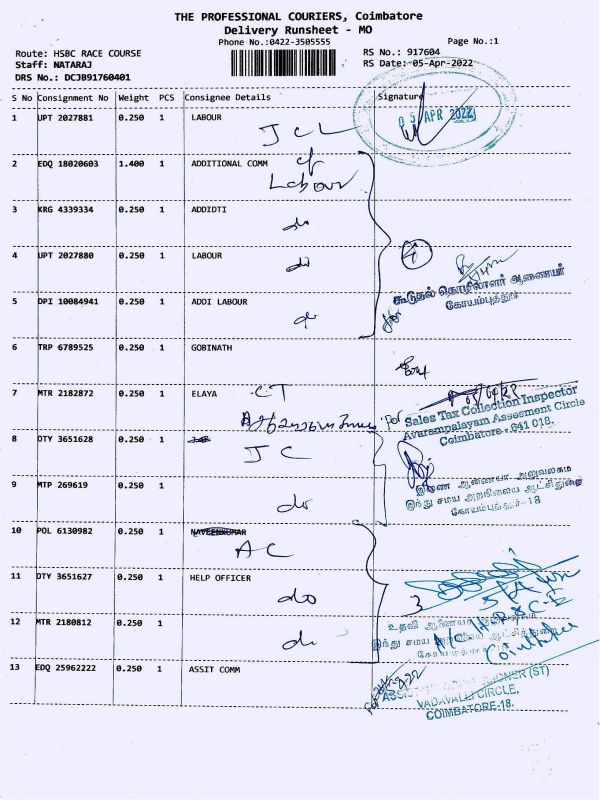 THE PROFESSIONAL COURIERS, Coimbatore
Delivery Runsheet - MO
Phone No.:0422-3505555
Page No.:1
Route: HSBC RACE COURSE
RS No.: 917604
Staff: NATARAJ
RS Date: 05-Apr-2022
DRS No.: DCJB91760401
S No Consignment No Weight PCS Consignee Details Signature
1 UPT 2027881 0.250 1 LABOUR
05 APR 2022
JCL
2 EDQ 18020603 1.400 1 ADDITIONAL COMM
of
Labour
3 KRG 4339334 0.250 1 ADDIDTI
do
4 UPT 2027880 0.250 1 LABOUR
do
4
கூடுதல் தொழிலாளர் ஆணையர்
கோயம்புத்தூர்
5 DPI 10084941 0.250 1 ADDI LABOUR
do
6 TRP 6789525 0.250 1 GOBINATH
7 MTR 2182872 0.250 1 ELAYA
CT
for
Sales Tax Collection Inspector
Avarampalayam Assesment Circle
Coimbatore - 641 018.
8 OTY 3651628 0.250 1
JC
இணை ஆணையர் அலுவலகம்
இந்து சமய அறநிலைய ஆட்சித்துறை
கோயம்புத்தூர்-18
9 MTP 269619 0.250 1
do
10 POL 6130982 0.250 1 NAVEENKUMAR
AC
11 OTY 3651627 0.250 1 HELP OFFICER
do
3
உதவி ஆணையர்
இந்து சமய
A/C HR & C.E
Coimbatore
12 MTR 2180812 0.250 1
do
13 EDQ 25962222 0.250 1 ASSIT COMM
for
(ST)
VADAVALLI CIRCLE,
COIMBATORE-18.